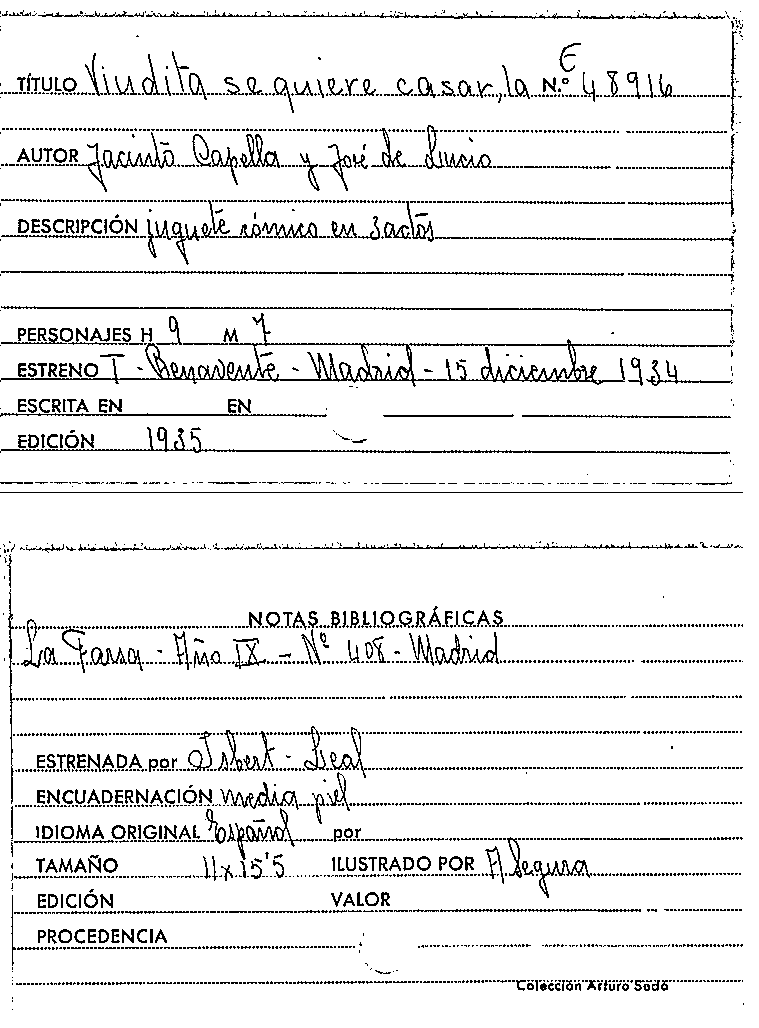 E
TÍTULO Viudita se quiere casar, la N.º 48916
AUTOR Jacinto Capella y José de Lucio
DESCRIPCIÓN juguete cómico en 3 actos
PERSONAJES H 9 M 7
ESTRENO T - Benavente - Madrid - 15 diciembre 1934
ESCRITA EN EN
EDICIÓN 1935
NOTAS BIBLIOGRÁFICAS
La Farsa - Año IX - Nº 408 - Madrid
ESTRENADA por Isbert - Leal
ENCUADERNACIÓN media piel
IDIOMA ORIGINAL Español por
TAMAÑO 11x15'5 ILUSTRADO POR A Segura
EDICIÓN VALOR
PROCEDENCIA
Colección Arturo Sedó